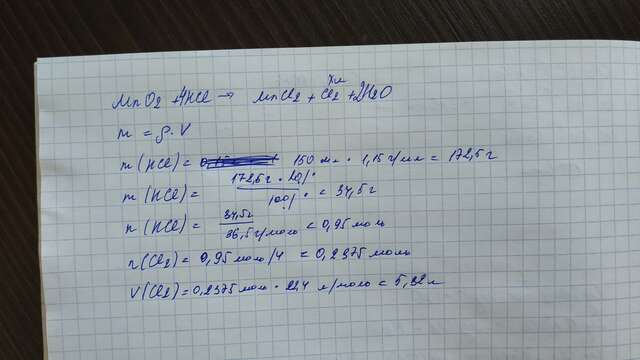 MnO2 + 4HCl → MnCl2 + Cl2 + 2H2O
m = ρ·V
m (HCl) = 150 мл · 1,15 г/мл = 172,5 г
m (HCl) = 172,5 г · 20% / 100% = 34,5 г
n (HCl) = 34,5 г / 36,5 г/моль = 0,95 моль
n (Cl2) = 0,95 моль / 4 = 0,2375 моль
V (Cl2) = 0,2375 моль · 22,4 л/моль = 5,32 л